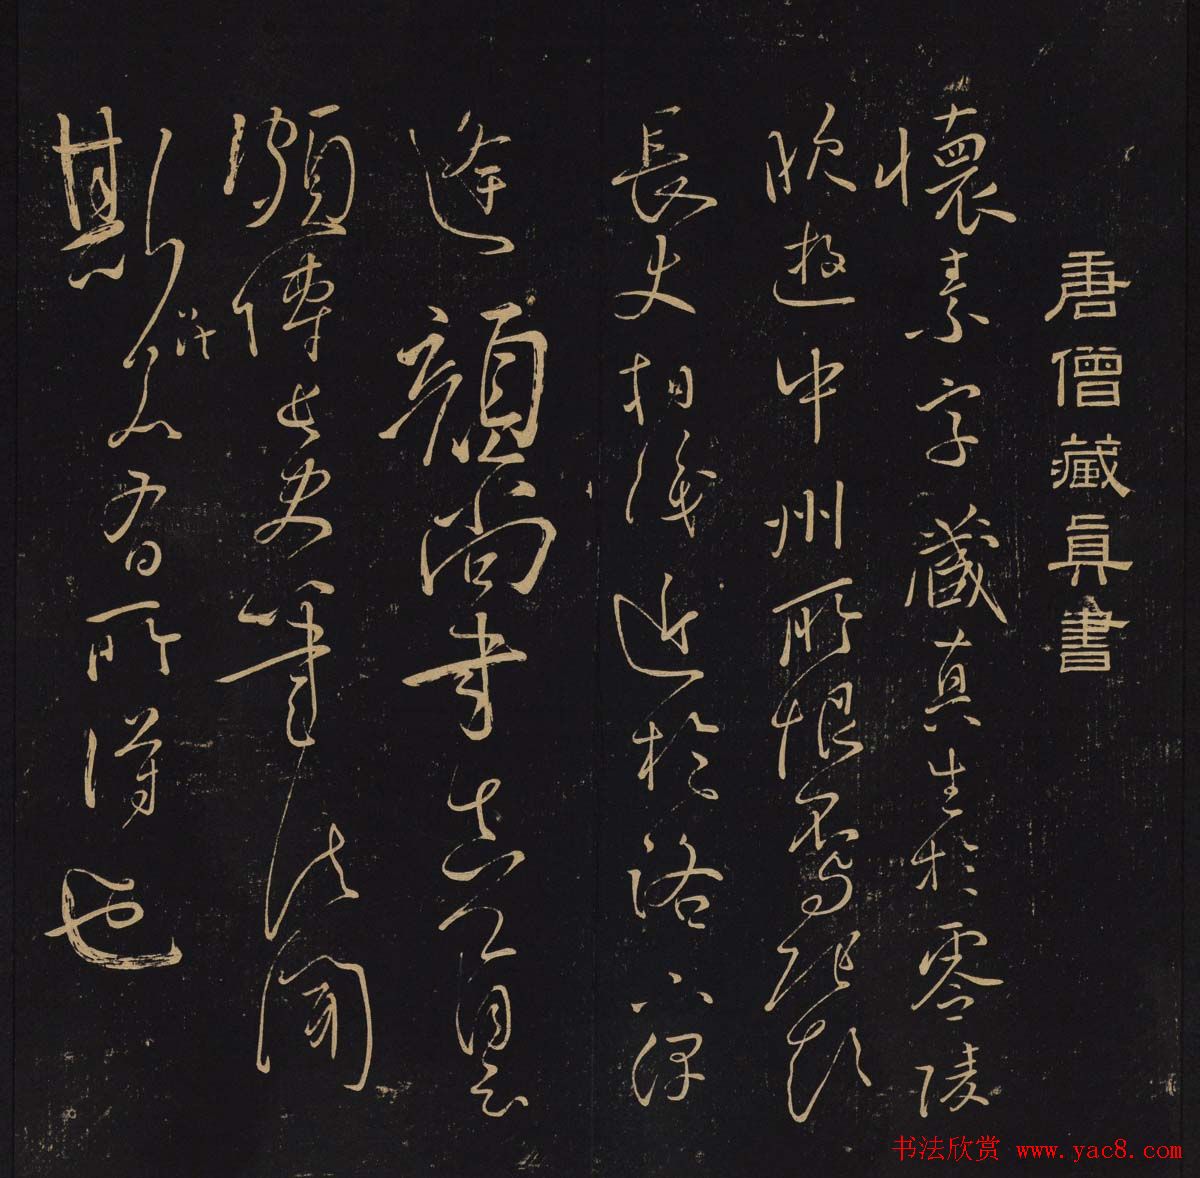 唐僧藏真書
懷素字藏真生於零陵
晚遊中州所恨不與張顛
長史相識近於洛下偶
逢顏尚書真卿自云
頗傳長史筆法聞
斯八法若有所得也
书法欣赏 www.yac8.com